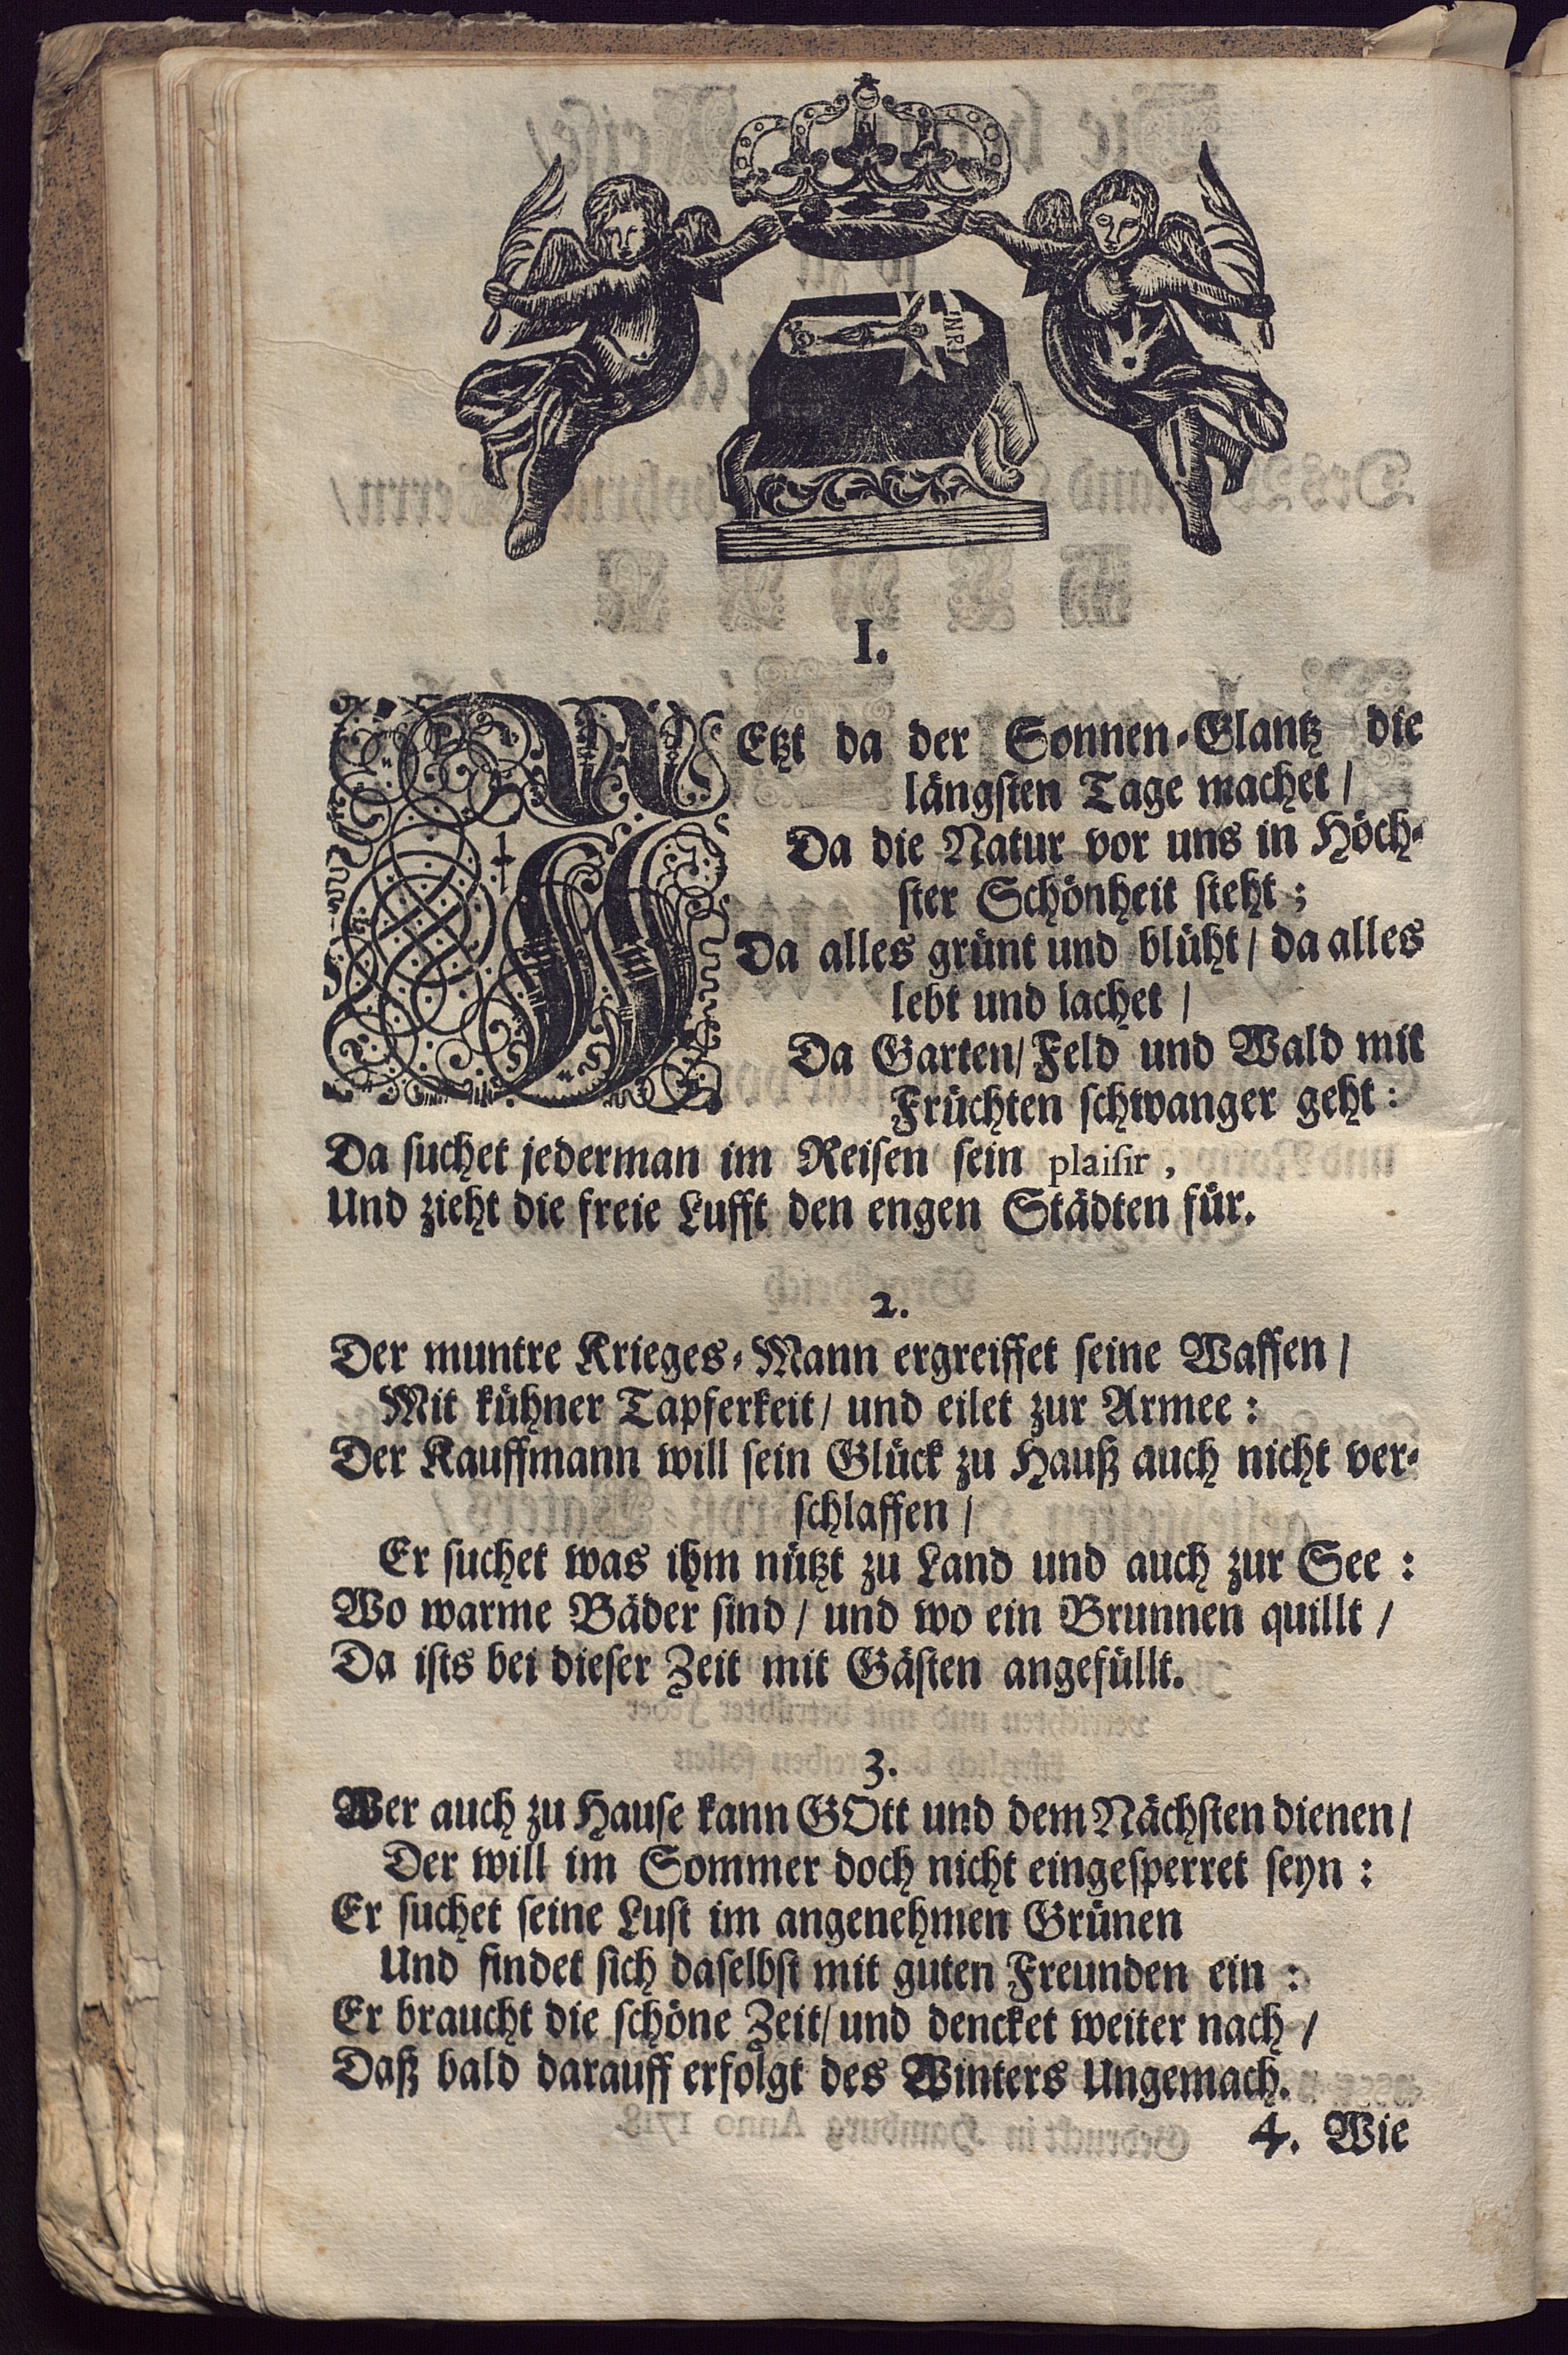 INRI
I.
JEtzt da der Sonnen-Glantz die
längsten Tage machet /
Da die Natur vor uns in Höch-
ster Schönheit steht ;
Da alles grünt und blüht / da alles
lebt und lachet /
Da Garten / Feld und Wald mit
Früchten schwanger geht :
Da suchet jederman im Reisen sein plaisir ,
Und zieht die freie Lufft den engen Städten für.
2.
Der muntre Krieges-Mann ergreiffet seine Waffen /
Mit kühner Tapferkeit / und eilet zur Armee :
Der Kauffmann will sein Glück zu Hauß auch nicht ver-
schlaffen /
Er suchet was ihm nützt zu Land und auch zur See :
Wo warme Bäder sind / und wo ein Brunnen quillt /
Da ists bei dieser Zeit mit Gästen angefüllt.
3.
Wer auch zu Hause kann GOtt und dem Nächsten dienen /
Der will im Sommer doch nicht eingesperret seyn :
Er suchet seine Lust im angenehmen Grünen
Und findet sich daselbst mit guten Freunden ein :
Er braucht die schöne Zeit / und dencket weiter nach /
Daß bald darauff erfolgt des Winters Ungemach.
4. Wie